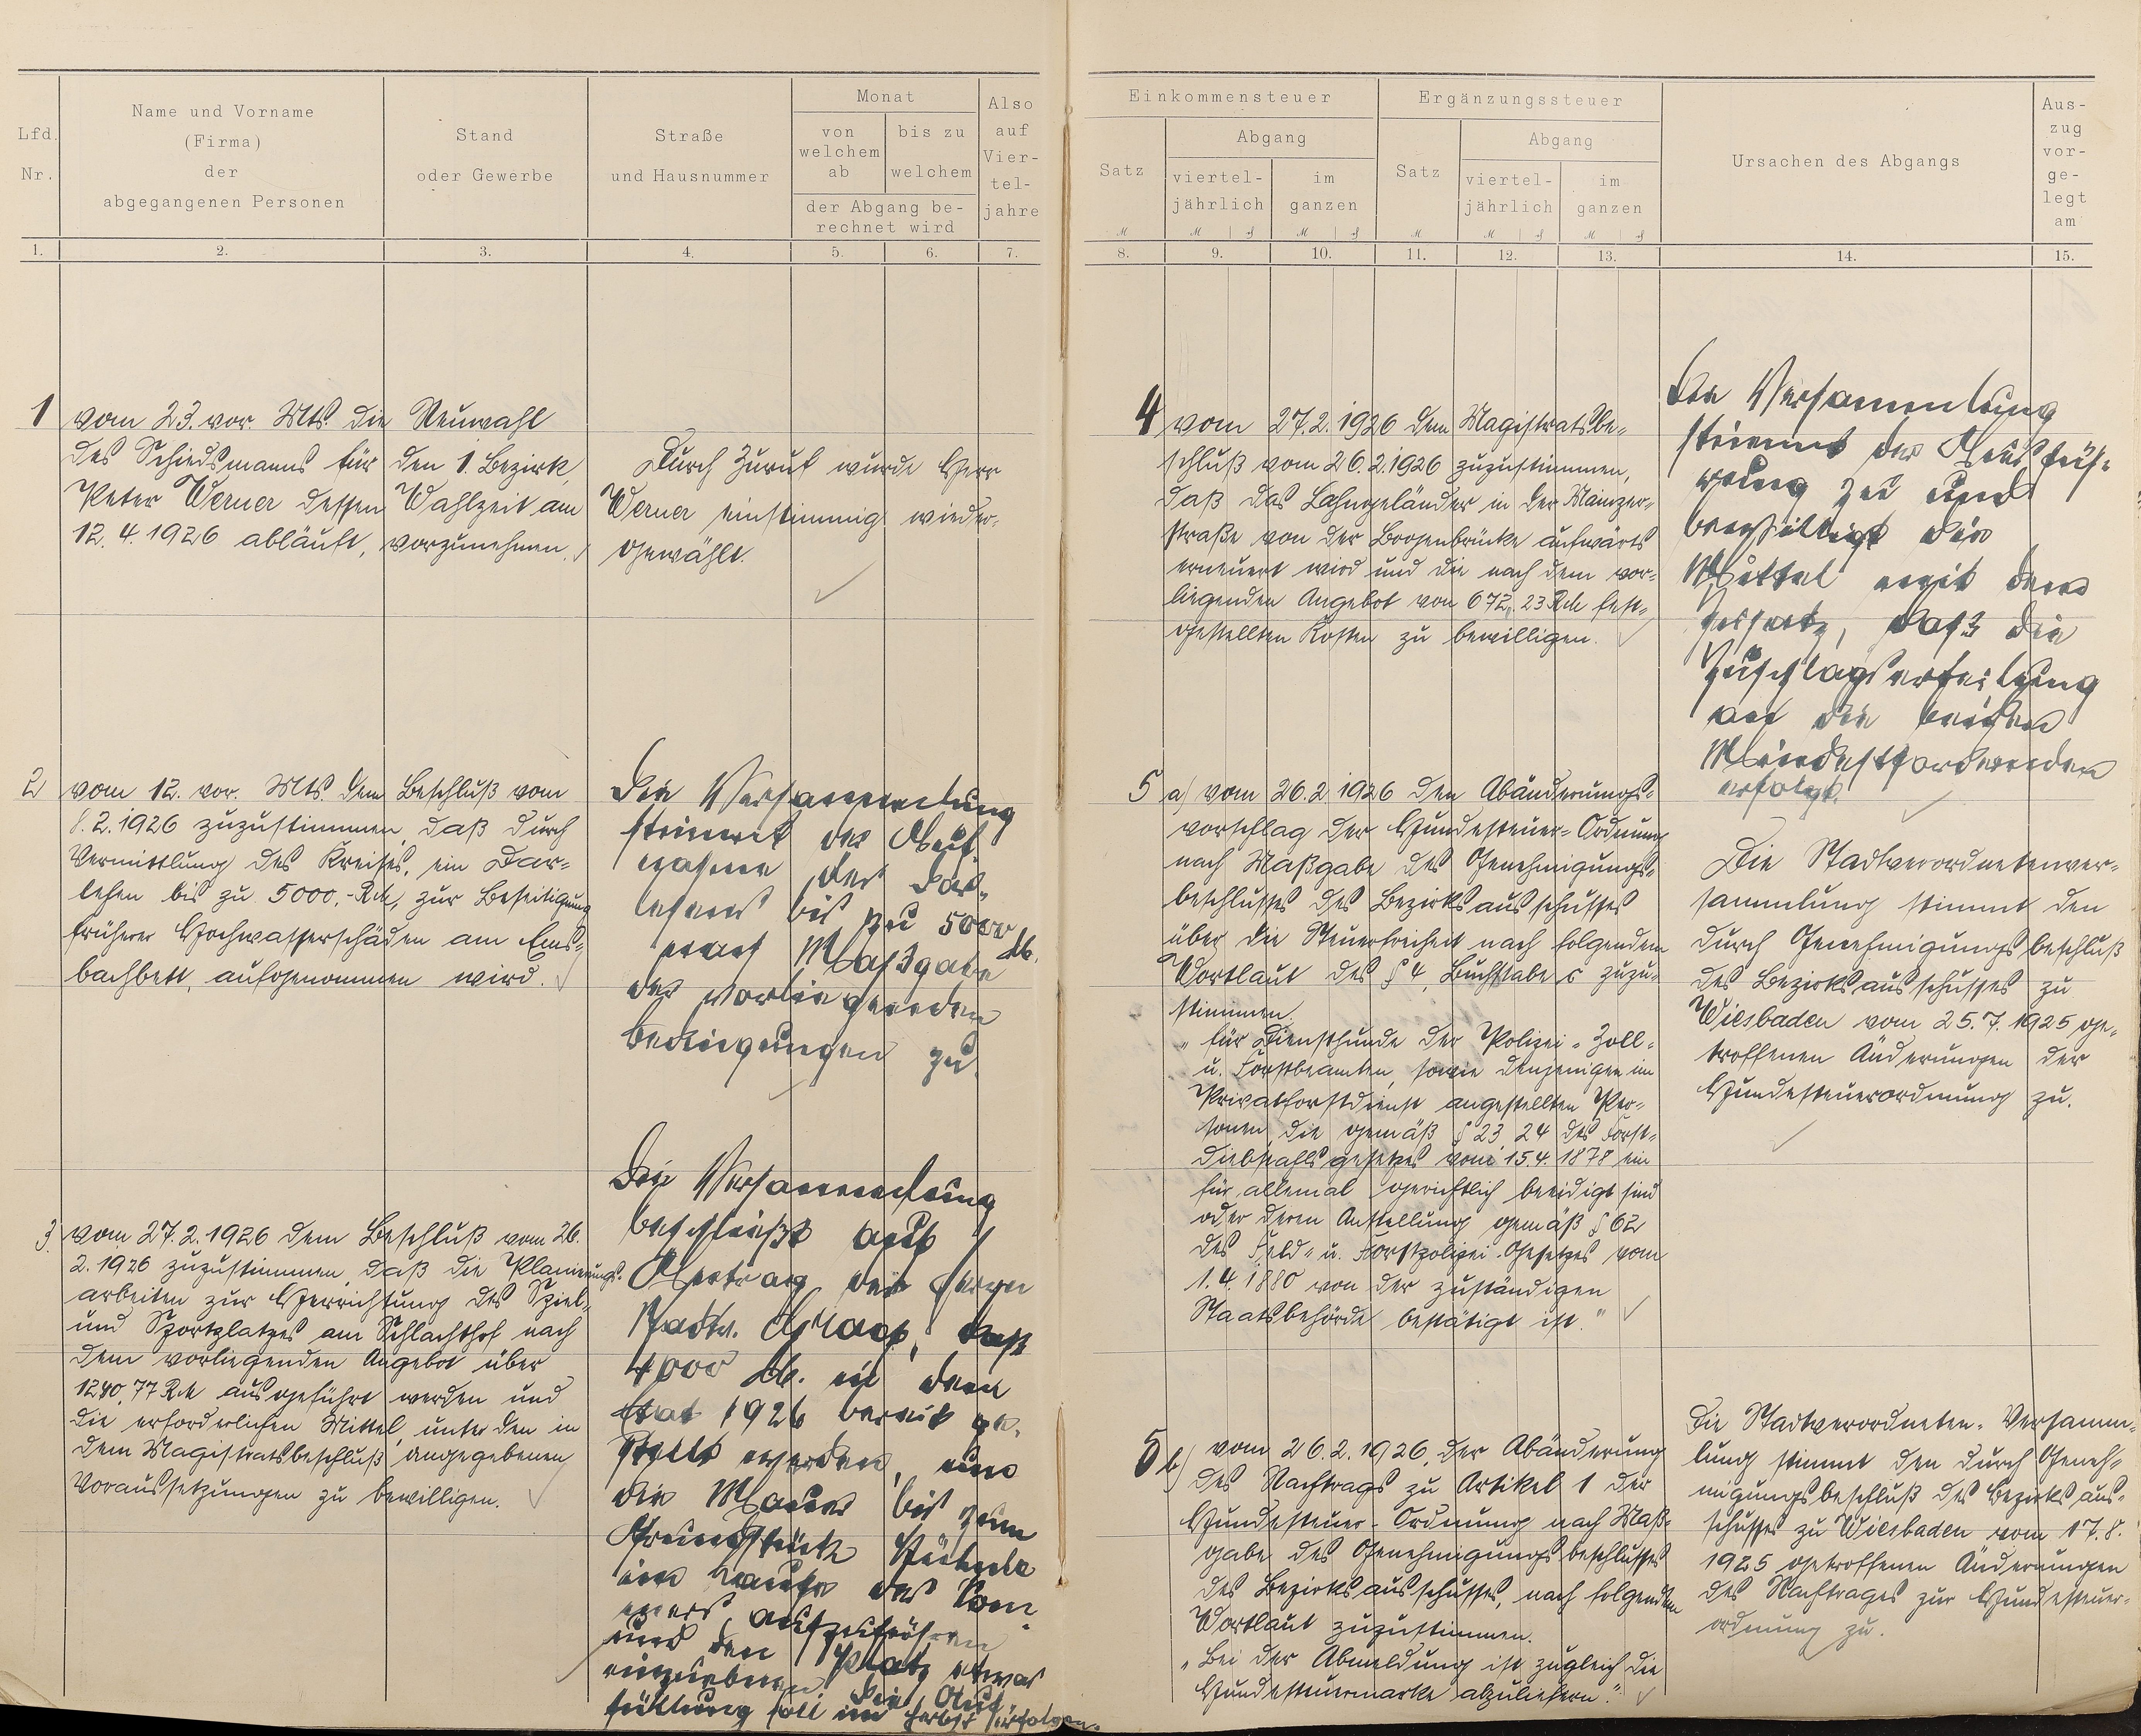 Lfd. Nr.
Name und Vorname
(Firma)
der
abgegangenen Personen
Stand
oder Gewerbe
Straße
und Hausnummer
Monat
von welchem ab
bis zu welchem
der Abgang be-
rechnet wird
Also auf Vier-tel-jahre
1. 2. 3. 4. 5. 6. 7.
1 vom 23. vor. Mts. die Neuwahl
des Schiedsmanns für den 1. Bezirk,
Peter Werner dessen Wahlzeit am
12.4.1926 abläuft, vorzunehmen.
Durch Zuruf wurde Herr
Werner einstimmig wieder-
gewählt.
2 vom 12. vor. Mts. dem Beschluß vom
8.2.1926 zuzustimmen, daß durch
Vermittlung des Kreises, ein Dar-
lehen bis zu 5000,- RM, zur Beseitigung
früherer Hochwasserschäden am Ems-
bachbett, aufgenommen wird.
Die Versammlung
stimmt der Auf-
nahme des Dar-
lehens bis zu 5000 M.
nach Maßgabe
der vorliegenden
Bedingungen zu.
3. vom 27.2.1926 dem Beschluß vom 26.
2.1926 zuzustimmen, daß die Planierungs-
arbeiten zur Herrichtung des Spiel-
und Sportplatzes am Schlachthof nach
dem vorliegenden Angebot über
1240,77 RM ausgeführt werden und
die erforderlichen Mittel, unter den in
dem Magistratsbeschluß angegebenen
Voraussetzungen zu bewilligen.
Die Versammlung
beschließt auf
Antrag des Herrn
Stadtv. daß
4000 M. in dem
Etat 1926 bereit ge-
stellt werden, um
die Mauer bis zum
Grundstück
im Laufe des Som-
mers aufzuführen
und den Platz etwas
einzuebnen. Die Auf-
füllung soll im Herbst erfolgen.
Einkommensteuer
Satz
Abgang
viertel-jährlich
im ganzen
Ergänzungssteuer
Satz
Abgang
viertel-jährlich
im ganzen
Ursachen des Abgangs
Aus-zug vor-ge-legt am
8. 9. 10. 11. 12. 13. 14. 15.
4 vom 27.2.1926 dem Magistratsbe-
schluß vom 26.2.1926 zuzustimmen,
daß das Lahngeländer in der Mainzer-
straße von der Bogenbrücke aufwärts
erneuert wird und die nach dem vor-
liegenden Angebot von 672,23 RM fest-
gestellten Kosten zu bewilligen.
Die Versammlung
stimmt der Ausfüh-
rung zu und
bewilligt die
Mittel mit dem
Zusatz, daß die
Zuschlagserteilung
an die beiden
Mindestfordernden
erfolgt.
5 a) vom 26.2.1926 den Abänderungs-
vorschlag der Hundesteuer-Ordnung
nach Maßgabe des Genehmigungs-
beschlusses des Bezirksausschusses
über die Steuerfreiheit nach folgendem
Wortlaut des § 4, Buchstabe c zuzu-
stimmen.
„für Diensthunde der Polizei- Zoll-
u. Forstbeamten, sowie denjenigen im
Privatforstdienst angestellten Per-
sonen, die gemäß § 23, 24 des Forst-
diebstahlsgesetzes vom 15.4.1878 ein
für allemal gerichtlich beeidigt sind
oder deren Anstellung gemäß § 62
des Feld- u. Forstpolizei-Gesetzes vom
1.4.1880 von der zuständigen
Staatsbehörde bestätigt ist."
Die Stadtverordnetenver-
sammlung stimmt den
durch Genehmigungsbeschluß
des Bezirksausschusses zu
Wiesbaden vom 25.7.1925 ge-
troffenen Änderungen der
Hundesteuerordnung zu.
5 b) vom 26.2.1926, der Abänderung
des Nachtrags zu Artikel 1 der
Hundesteuer-Ordnung nach Maß-
gabe des Genehmigungsbeschlusses
des Bezirksausschusses, nach folgendem
Wortlaut zuzustimmen.
„Bei der Abmeldung ist zugleich die
Hundesteuermarke abzuliefern."
Die Stadtverordneten-Versamm-
lung stimmt den durch Geneh-
migungsbeschluß des Bezirksaus-
schusses zu Wiesbaden vom 17.8.
1925 getroffenen Änderungen
des Nachtrages zur Hundesteuer-
ordnung zu.